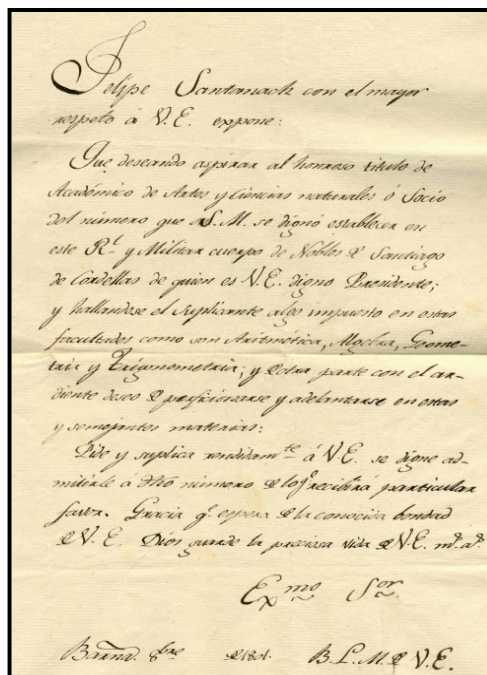 Felipe Santanach con el mayor
respeto á V.E. expone:
Que deseando aspirar al honroso titulo de
Académico de Artes y Ciencias naturales ó Socio
del número que a S.M. se dignó establecer en
este Rl. y Militar cuerpo de Nobles de Santiago
de Cordellas de quien es V.E. digno Presidente;
y hallandose el Suplicante algo impuesto en estas
facultades como son Aritmética, Algebra, Geome-
tria y Trigonometria; y de otra parte con el ar-
diente deseo de perficionarse y adelantarse en estas
y semejantes materias:
Pide y suplica rendidamte á V.E. se digne ad-
mitirle á dho número de lo q recibirá particular
favor. Gracia q espera de la conocida bondad
de V.E. Dios guarde la preciosa vida de V.E. ms. as.
Exmo Sor.
Barna. 8bre de 1801. B.L.M. de V.E.